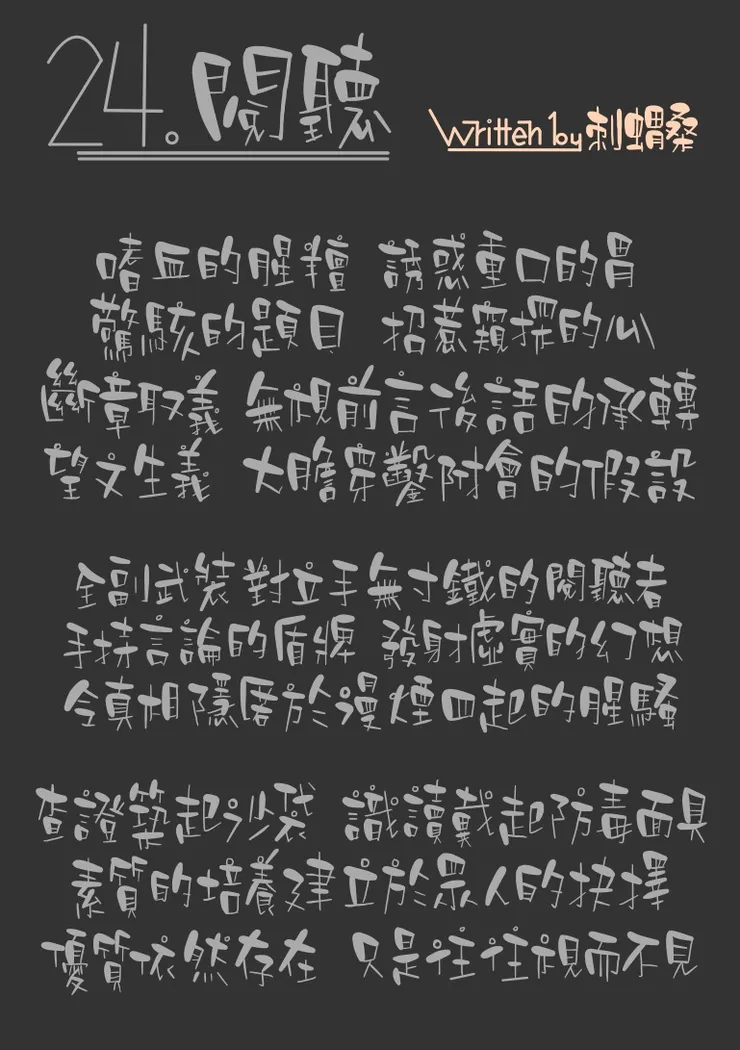 24.閱聽
Written by刺蝟桑
嗜血的腥羶 誘惑重口的胃
驚駭的題目 招惹窺探的心
斷章取義 無視前言後語的承轉
望文生義 大膽穿鑿附會的假設
全副武裝對立手無寸鐵的閱聽者
手持言論的盾牌 發射虛實的幻想
令真相隱匿於漫煙四起的腥騷
查證築起沙袋 識讀戴起防毒面具
素質的培養建立於眾人的抉擇
優質依然存在 只是往往視而不見